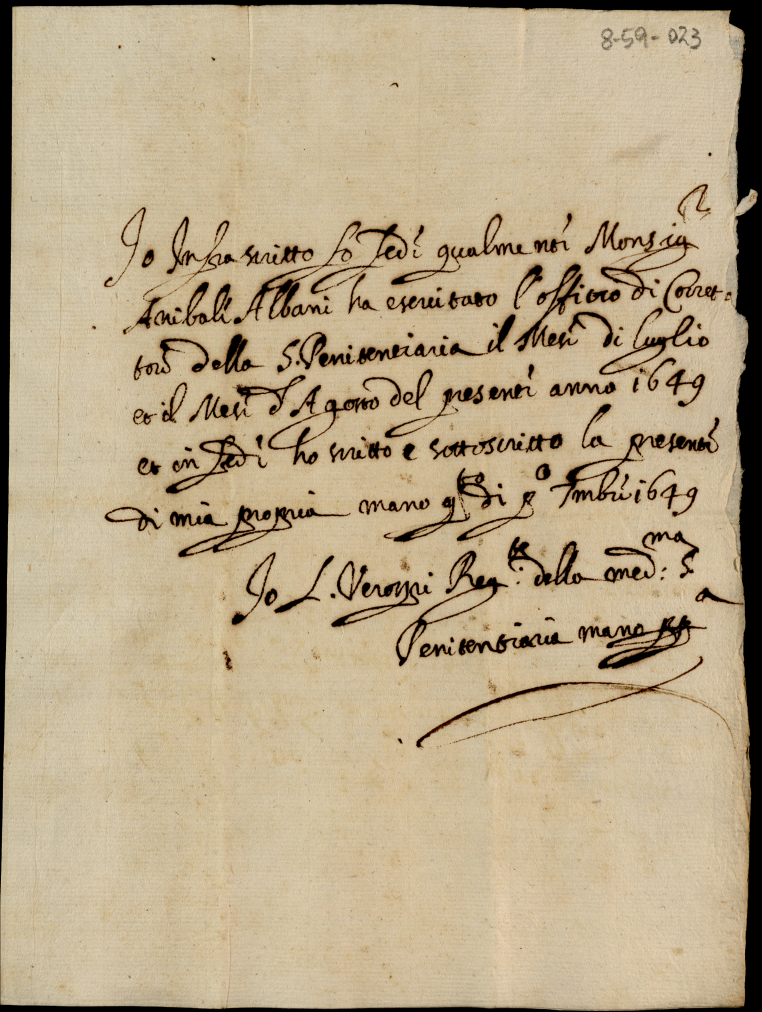 8-59-023
Io Infrascritto fo fede qualmente Monsig.r
Anibale Albani ha esercitato l'offitio di Corret-
tore della S. Penitentiaria il Mese di luglio
et il Mese d'Agosto del presente anno 1649
et in fede ho scritto e sottoscritto la presente
di mia propria mano q.sto di p.o 7mbre 1649
Io L. Verospi Reg.te della med.ma: S.
Penitentiaria mano pp.a